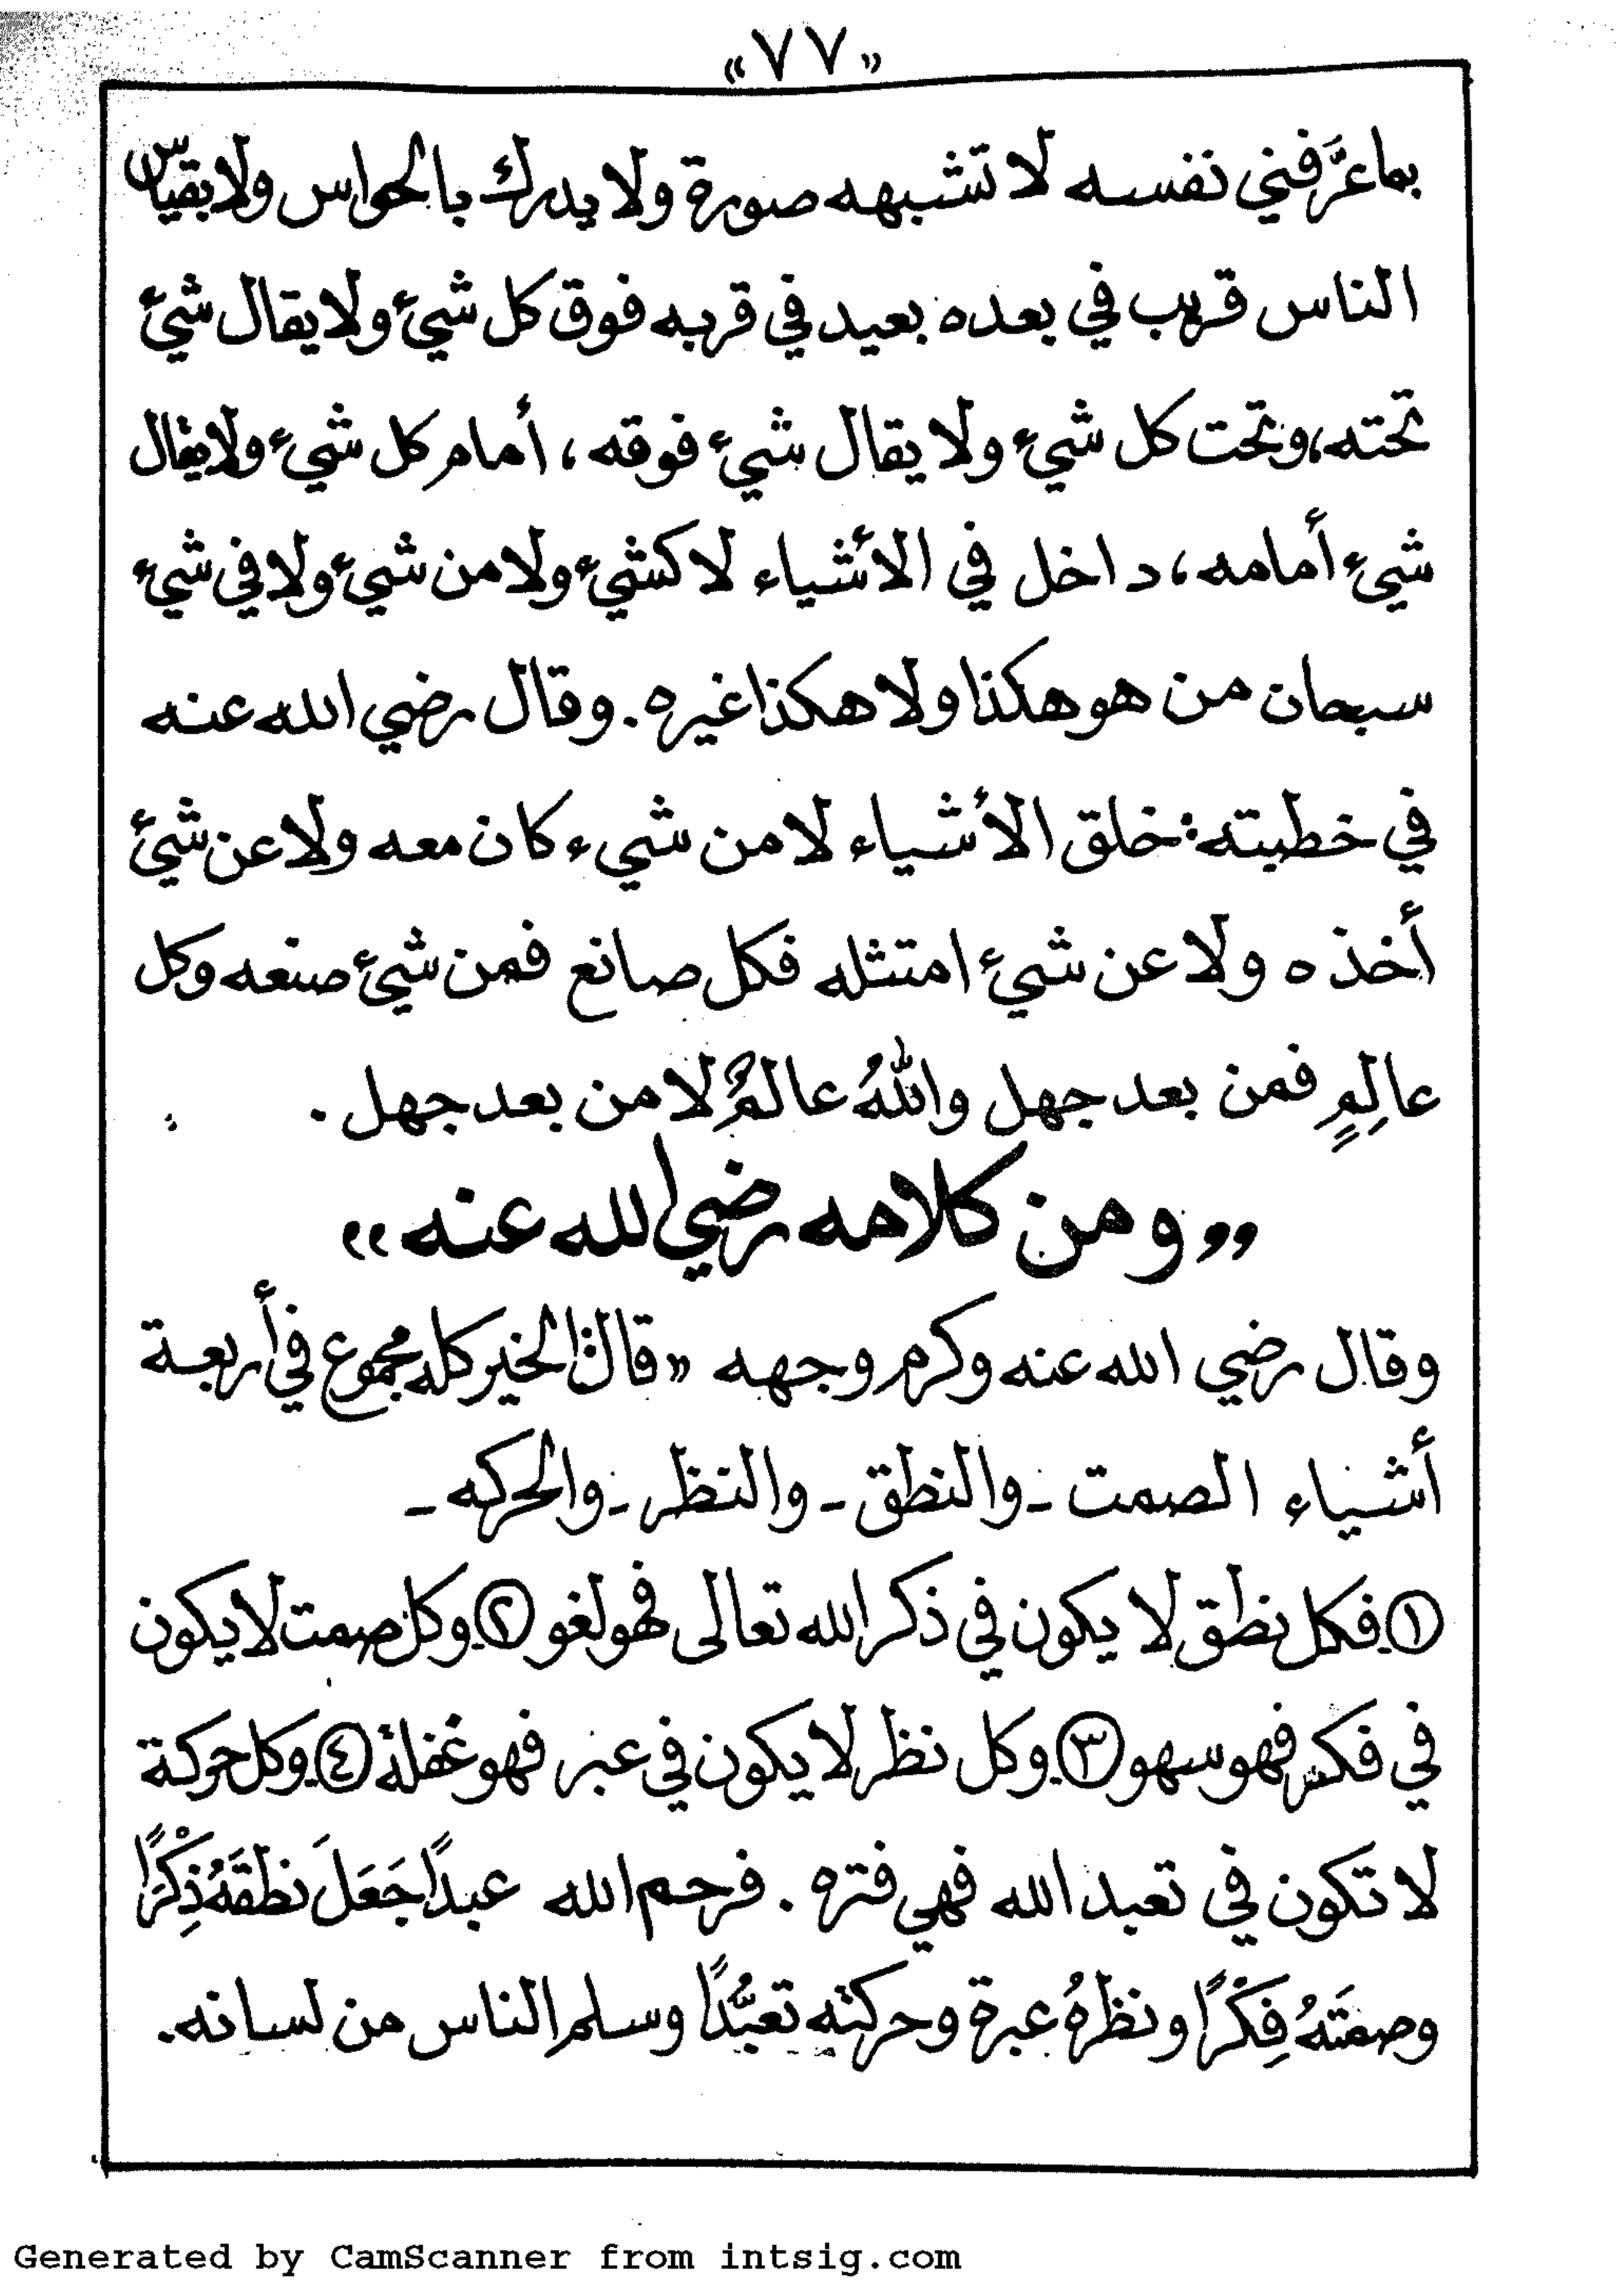 «٧٧»
بماعرَّفني نفسه لا تشبهه صورة ولا يدرك بالحواس ولا بقياس
الناس قريب في بعده بعيد في قربه فوق كل شيئ ولا يقال شيئ
تحته، وتحت كل شيئ ولا يقال شيئ فوقه، أمام كل شيئ ولا يقال
شيئ أمامه، داخل في الأشياء لا كشيئ ولا من شيئ ولا في شيئ
سبحان من هو هكذا ولا هكذا غيره. وقال رضي الله عنه
في خطبته: خلق الأشياء لا من شيء كان معه ولا عن شيئ
أخذه ولا عن شيئ امتثله فكل صانع فمن شيئ صنعه وكل
عالِمٍ فمن بعد جهل واللهُ عالمٌ لا من بعد جهل.
,, ومن كلامه رضي الله عنه ,,
وقال رضي الله عنه وكرم وجهه « قال: الخير كله مجموع في أربعة
أشياء الصمت - والنطق - والنظر - والحركه -
① فكل نطق لا يكون في ذكر الله تعالى فهو لغو ② وكل صمت لا يكون
في فكر فهو سهو ③ وكل نظر لا يكون في عبر فهو غفلة ④ وكل حركة
لا تكون في تعبد الله فهي فتره. فرحم الله عبدًا جَعَلَ نطقَهُ ذِكْرًا
وصمتَهُ فِكْرًا ونظرهُ عبرة وحركته تعبُّدًا وسلم الناس من لسانه.
Generated by CamScanner from intsig.com